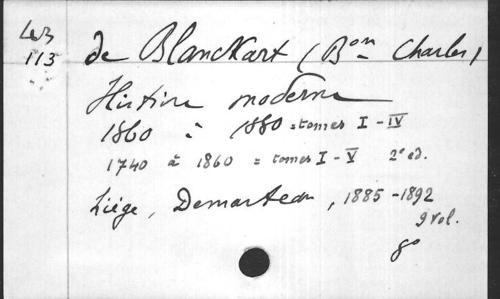 113
de Blanckart (Bon Charles)
Histoire moderne
1860 à 1880 = tomes I - IV
1740 à 1860 = tomes I - V 2e ed.
Liège, Demarteau, 1885 - 1892
9 vol.
8°